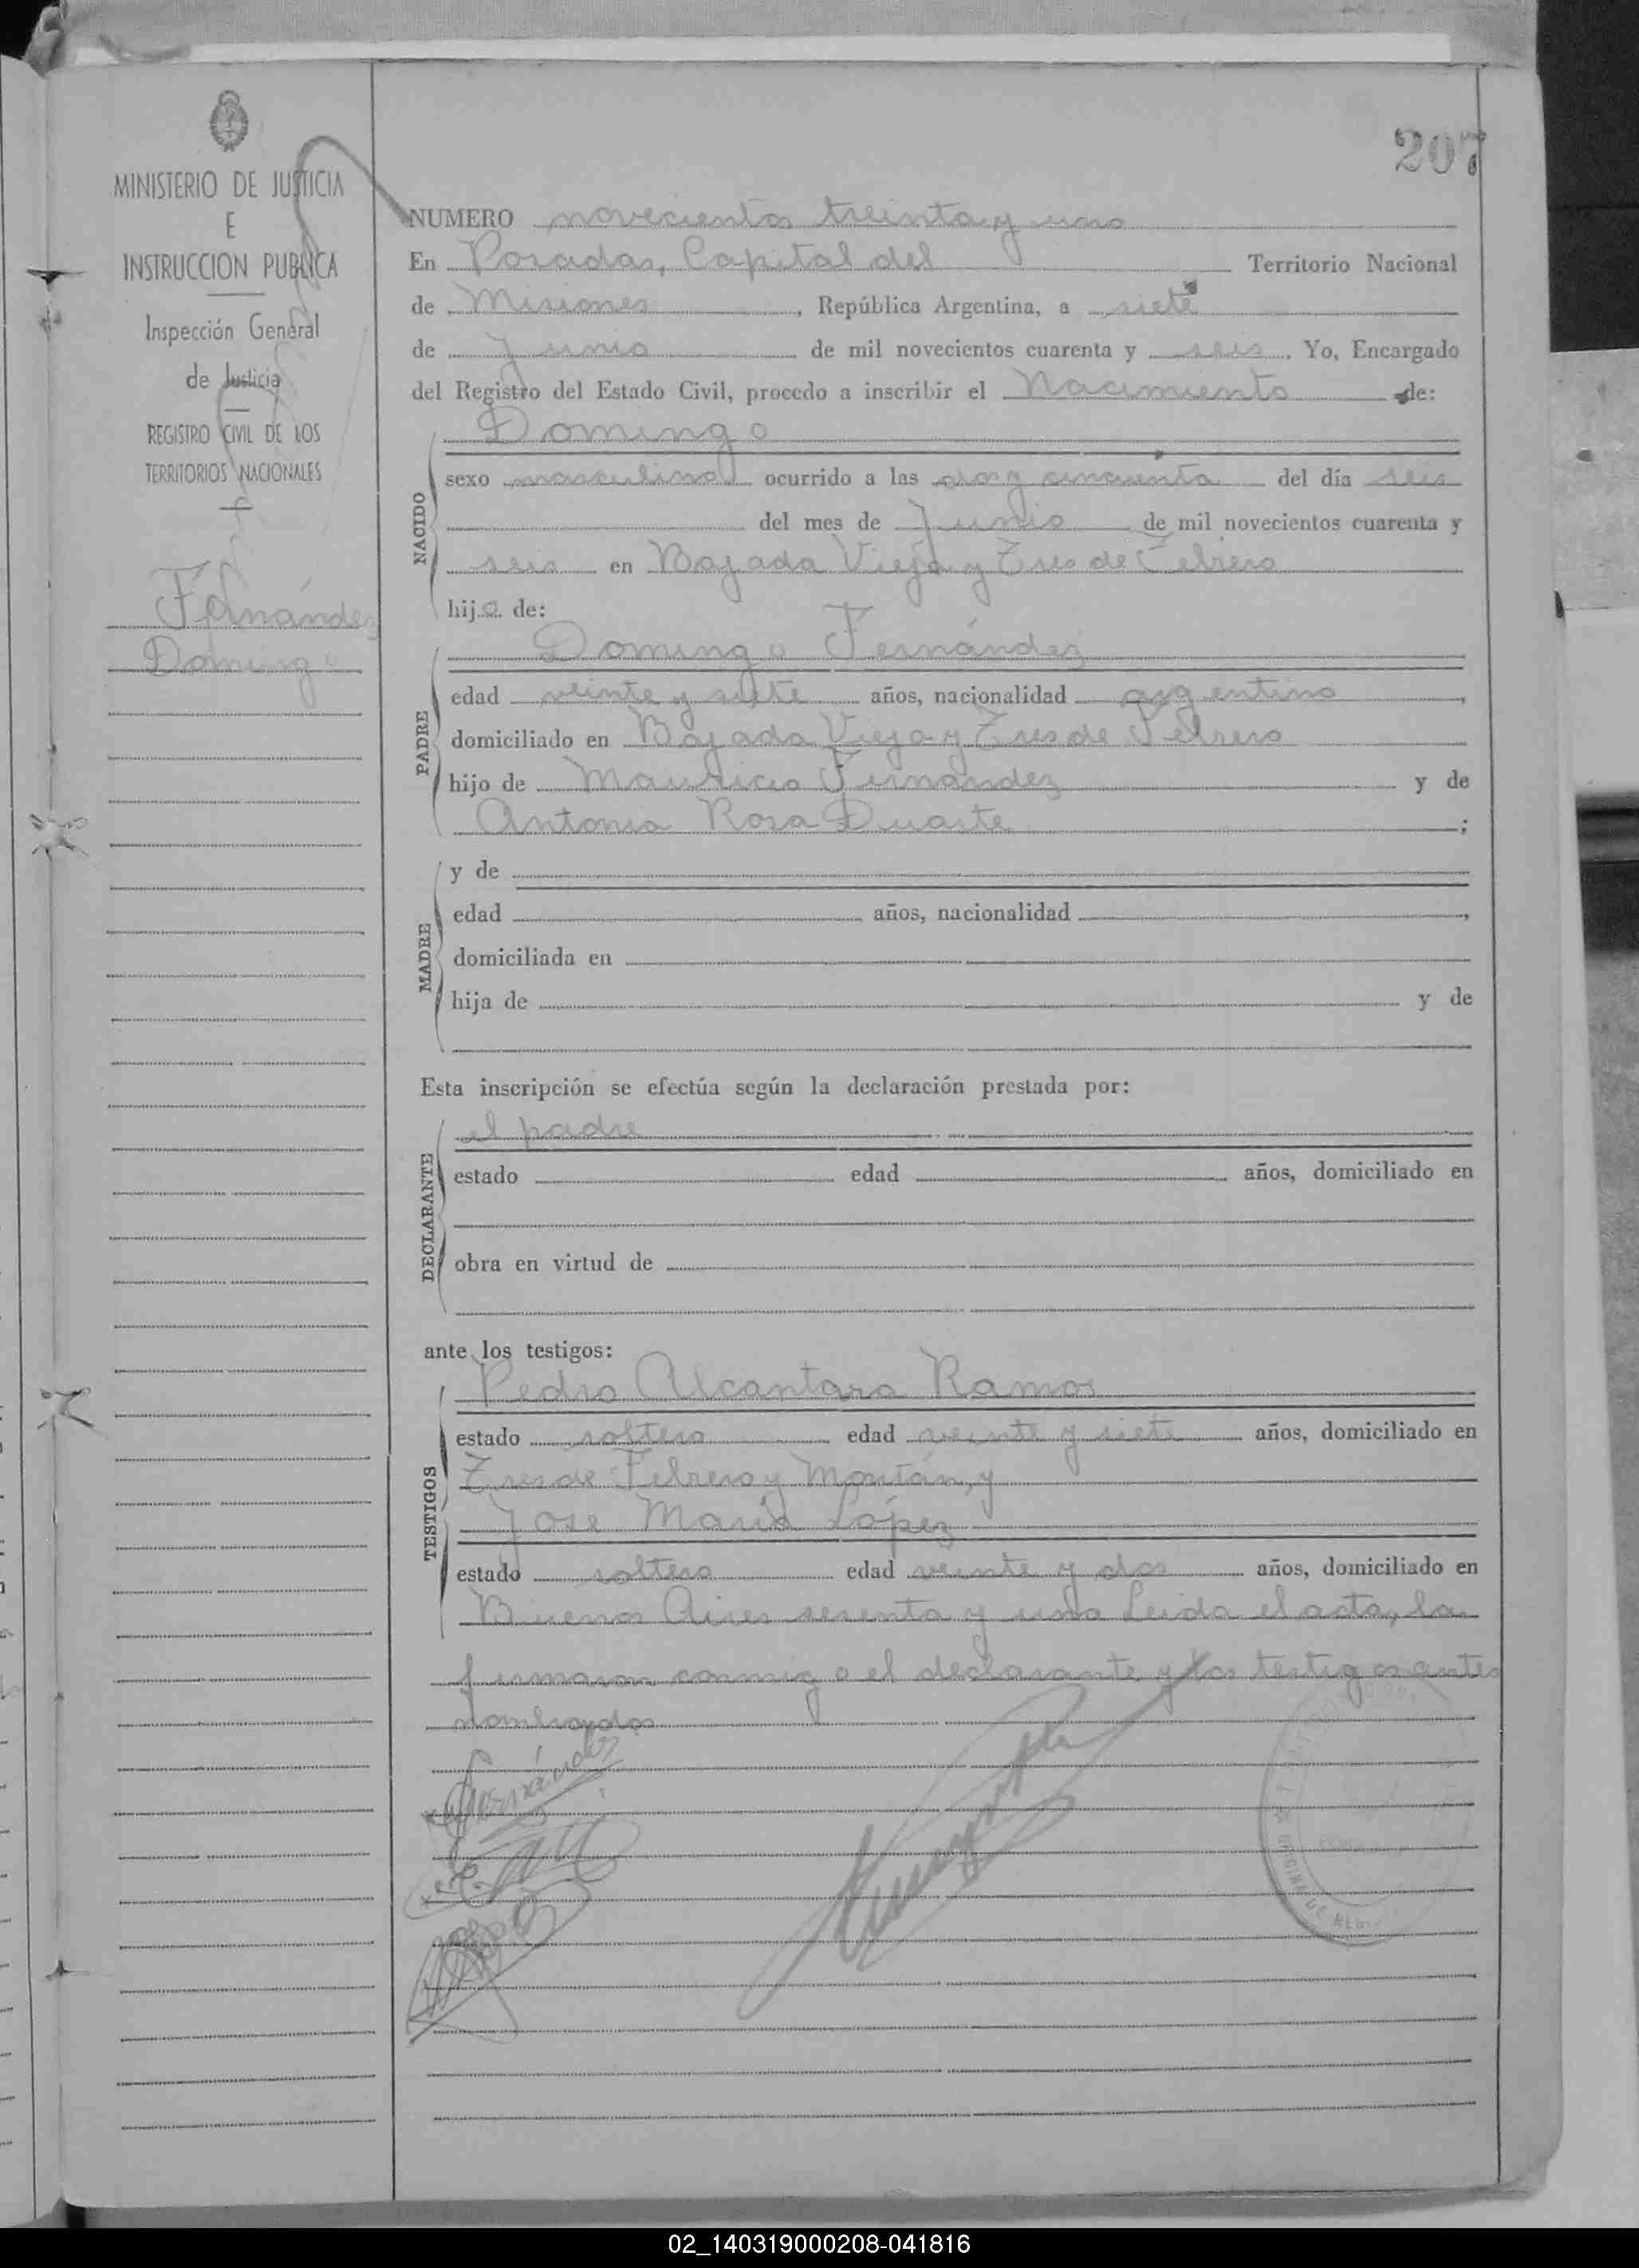 207
MINISTERIO DE JUSTICIA
E
INSTRUCCION PUBLICA
Inspección General
de Justicia
REGISTRO CIVIL DE LOS
TERRITORIOS NACIONALES
Fernández
Domingo
NUMERO novecientos treinta y uno
En Posadas, Capital del Territorio Nacional
de Misiones, República Argentina, a siete
de Junio de mil novecientos cuarenta y seis. Yo, Encargado
del Registro del Estado Civil, procedo a inscribir el Nacimiento de:
NACIDO
Domingo
sexo masculino ocurrido a las dos y cincuenta del día seis
del mes de Junio de mil novecientos cuarenta y
seis en Bajada Vieja y Tres de Febrero
hijo de:
PADRE
Domingo Fernández
edad veinte y siete años, nacionalidad argentino,
domiciliado en Bajada Vieja y Tres de Febrero
hijo de Mauricio Fernández y de
Antonia Rosa Duarte;
MADRE
y de
edad años, nacionalidad,
domiciliada en
hija de y de
Esta inscripción se efectúa según la declaración prestada por:
DECLARANTE
el padre
estado edad años, domiciliado en
obra en virtud de
ante los testigos:
TESTIGOS
Pedro Alcantara Ramos
estado soltero edad veinte y siete años, domiciliado en
Tres de Febrero y y
Jose María López
estado soltero edad veinte y dos años, domiciliado en
Buenos Aires sesenta y uno Leida el acta, la
firmaron conmigo el declarante y los testigos antes
nombrados
Fernández
02_140319000208-041816